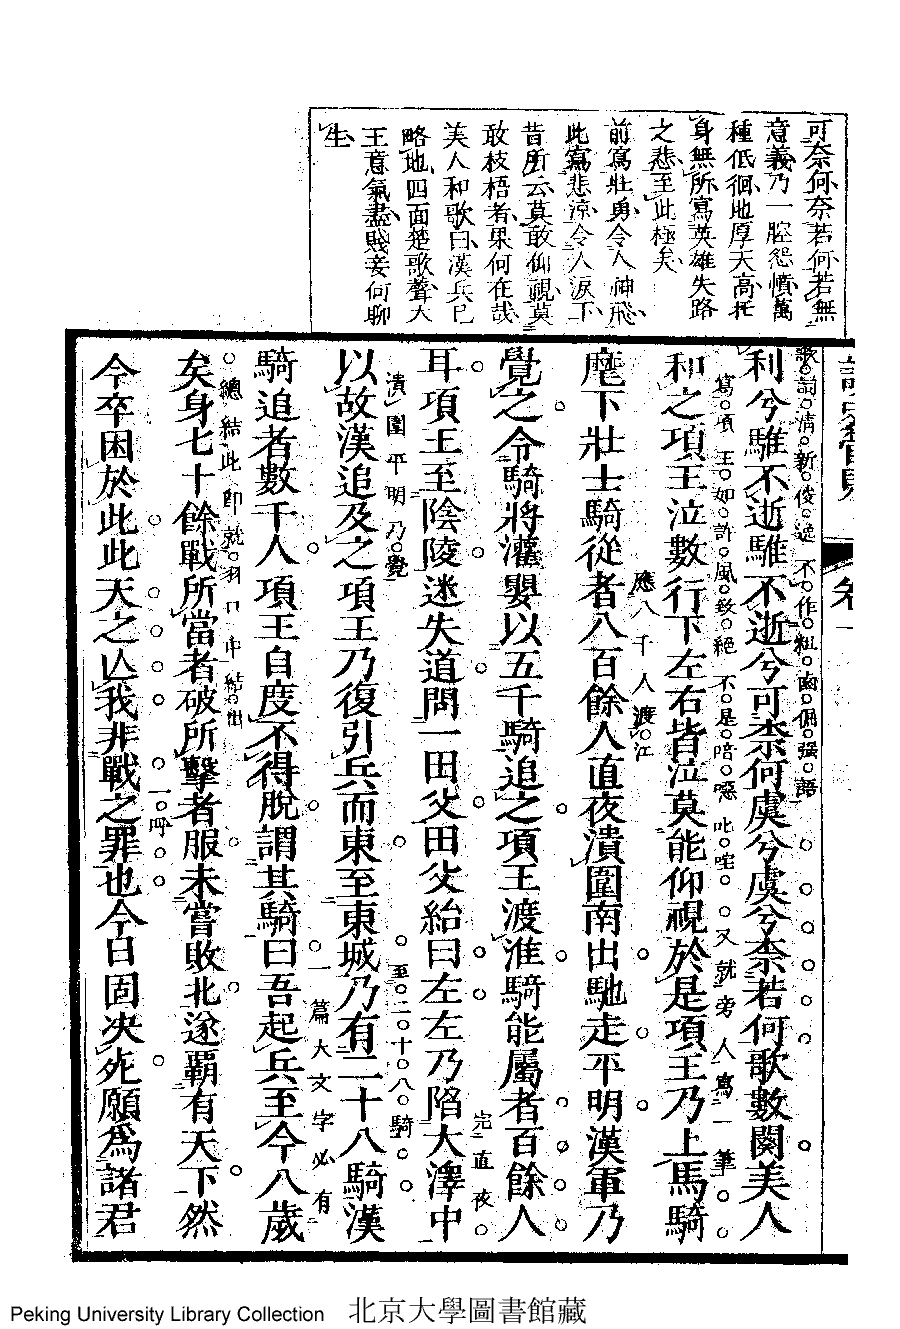 可奈何奈若何若無
意義乃一腔怨憤萬
種低徊地厚天高托
身無所寫英雄失路
之悲至此極矣
前寫壯勇令人神飛
此寫悲涼令人淚下
昔所云莫敢仰視莫
敢枝梧者果何在哉
美人和歌曰漢兵已
略地四面楚歌聲大
王意氣盡賤妾何聊
生
卷一
歌詞清新俊逸不作粗鹵倔强語
利兮騅不逝騅不逝兮可柰何虞兮虞兮柰若何歌數闋美人
寫項王如許風致絕不是喑噁叱咤又就旁人寫一筆
和之項王泣數行下左右皆泣莫能仰視於是項王乃上馬騎
應八千人渡江
麾下壯士騎從者八百餘人直夜潰圍南出馳走平明漢軍乃
覺之令騎將灌嬰以五千騎追之項王渡淮騎能屬者百餘人
完直夜
潰圍平明乃覺
耳項王至陰陵迷失道問一田父田父紿曰左左乃陷大澤中
至二十八騎
以故漢追及之項王乃復引兵而東至東城乃有二十八騎漢
一篇大文字必有
騎追者數千人項王自度不得脫謂其騎曰吾起兵至今八歲
總結此卽就羽口中結出
矣身七十餘戰所當者破所擊者服未嘗敗北遂霸有天下然
一呼
今卒困於此此天之亾我非戰之罪也今日固決死願爲諸君
Peking University Library Collection 北京大學圖書館藏